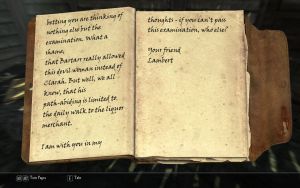 betting you are thinking of
nothing else but the
examination. What a
shame,
that Bartarr really allowed
this devil-woman instead of
Clarah. But well, we all
know, that his
path-abiding is limited to
the daily walk to the liquor
merchant.

I am with you in my
thoughts - if you can't pass
this examination, who else?

Your friend
Lambert
Turn Pages
Take